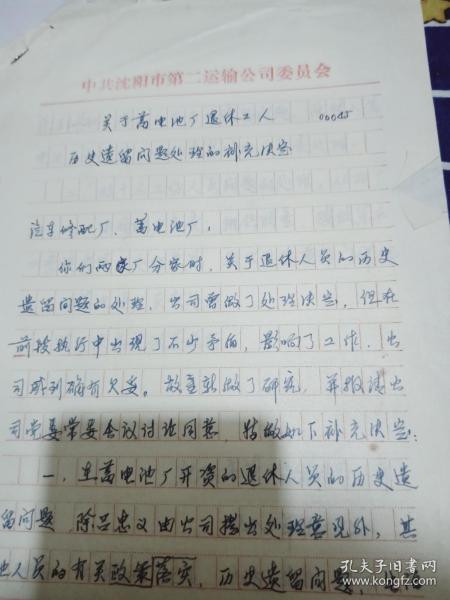 中共沈阳市第二运输公司委员会
关于蓄电池厂退休工人 00045
历史遗留问题处理的补充决定
汽车修配厂、蓄电池厂，
你们两家厂分家时，关于退休人员的历史
遗留问题的处理，公司曾做了处理决定，但在
前段执行中出现了不少矛盾，影响了工作，公
司感到确有欠妥。故重新做了研究，并报请公
司党委常委会议讨论同意，特做如下补充决定：
一、在蓄电池厂开资的退休人员的历史遗
留问题，除吕忠义由公司提出处理意见外，其
他人员的有关政策落实，历史遗留问题，
孔夫子旧书网
book.kongfz.com